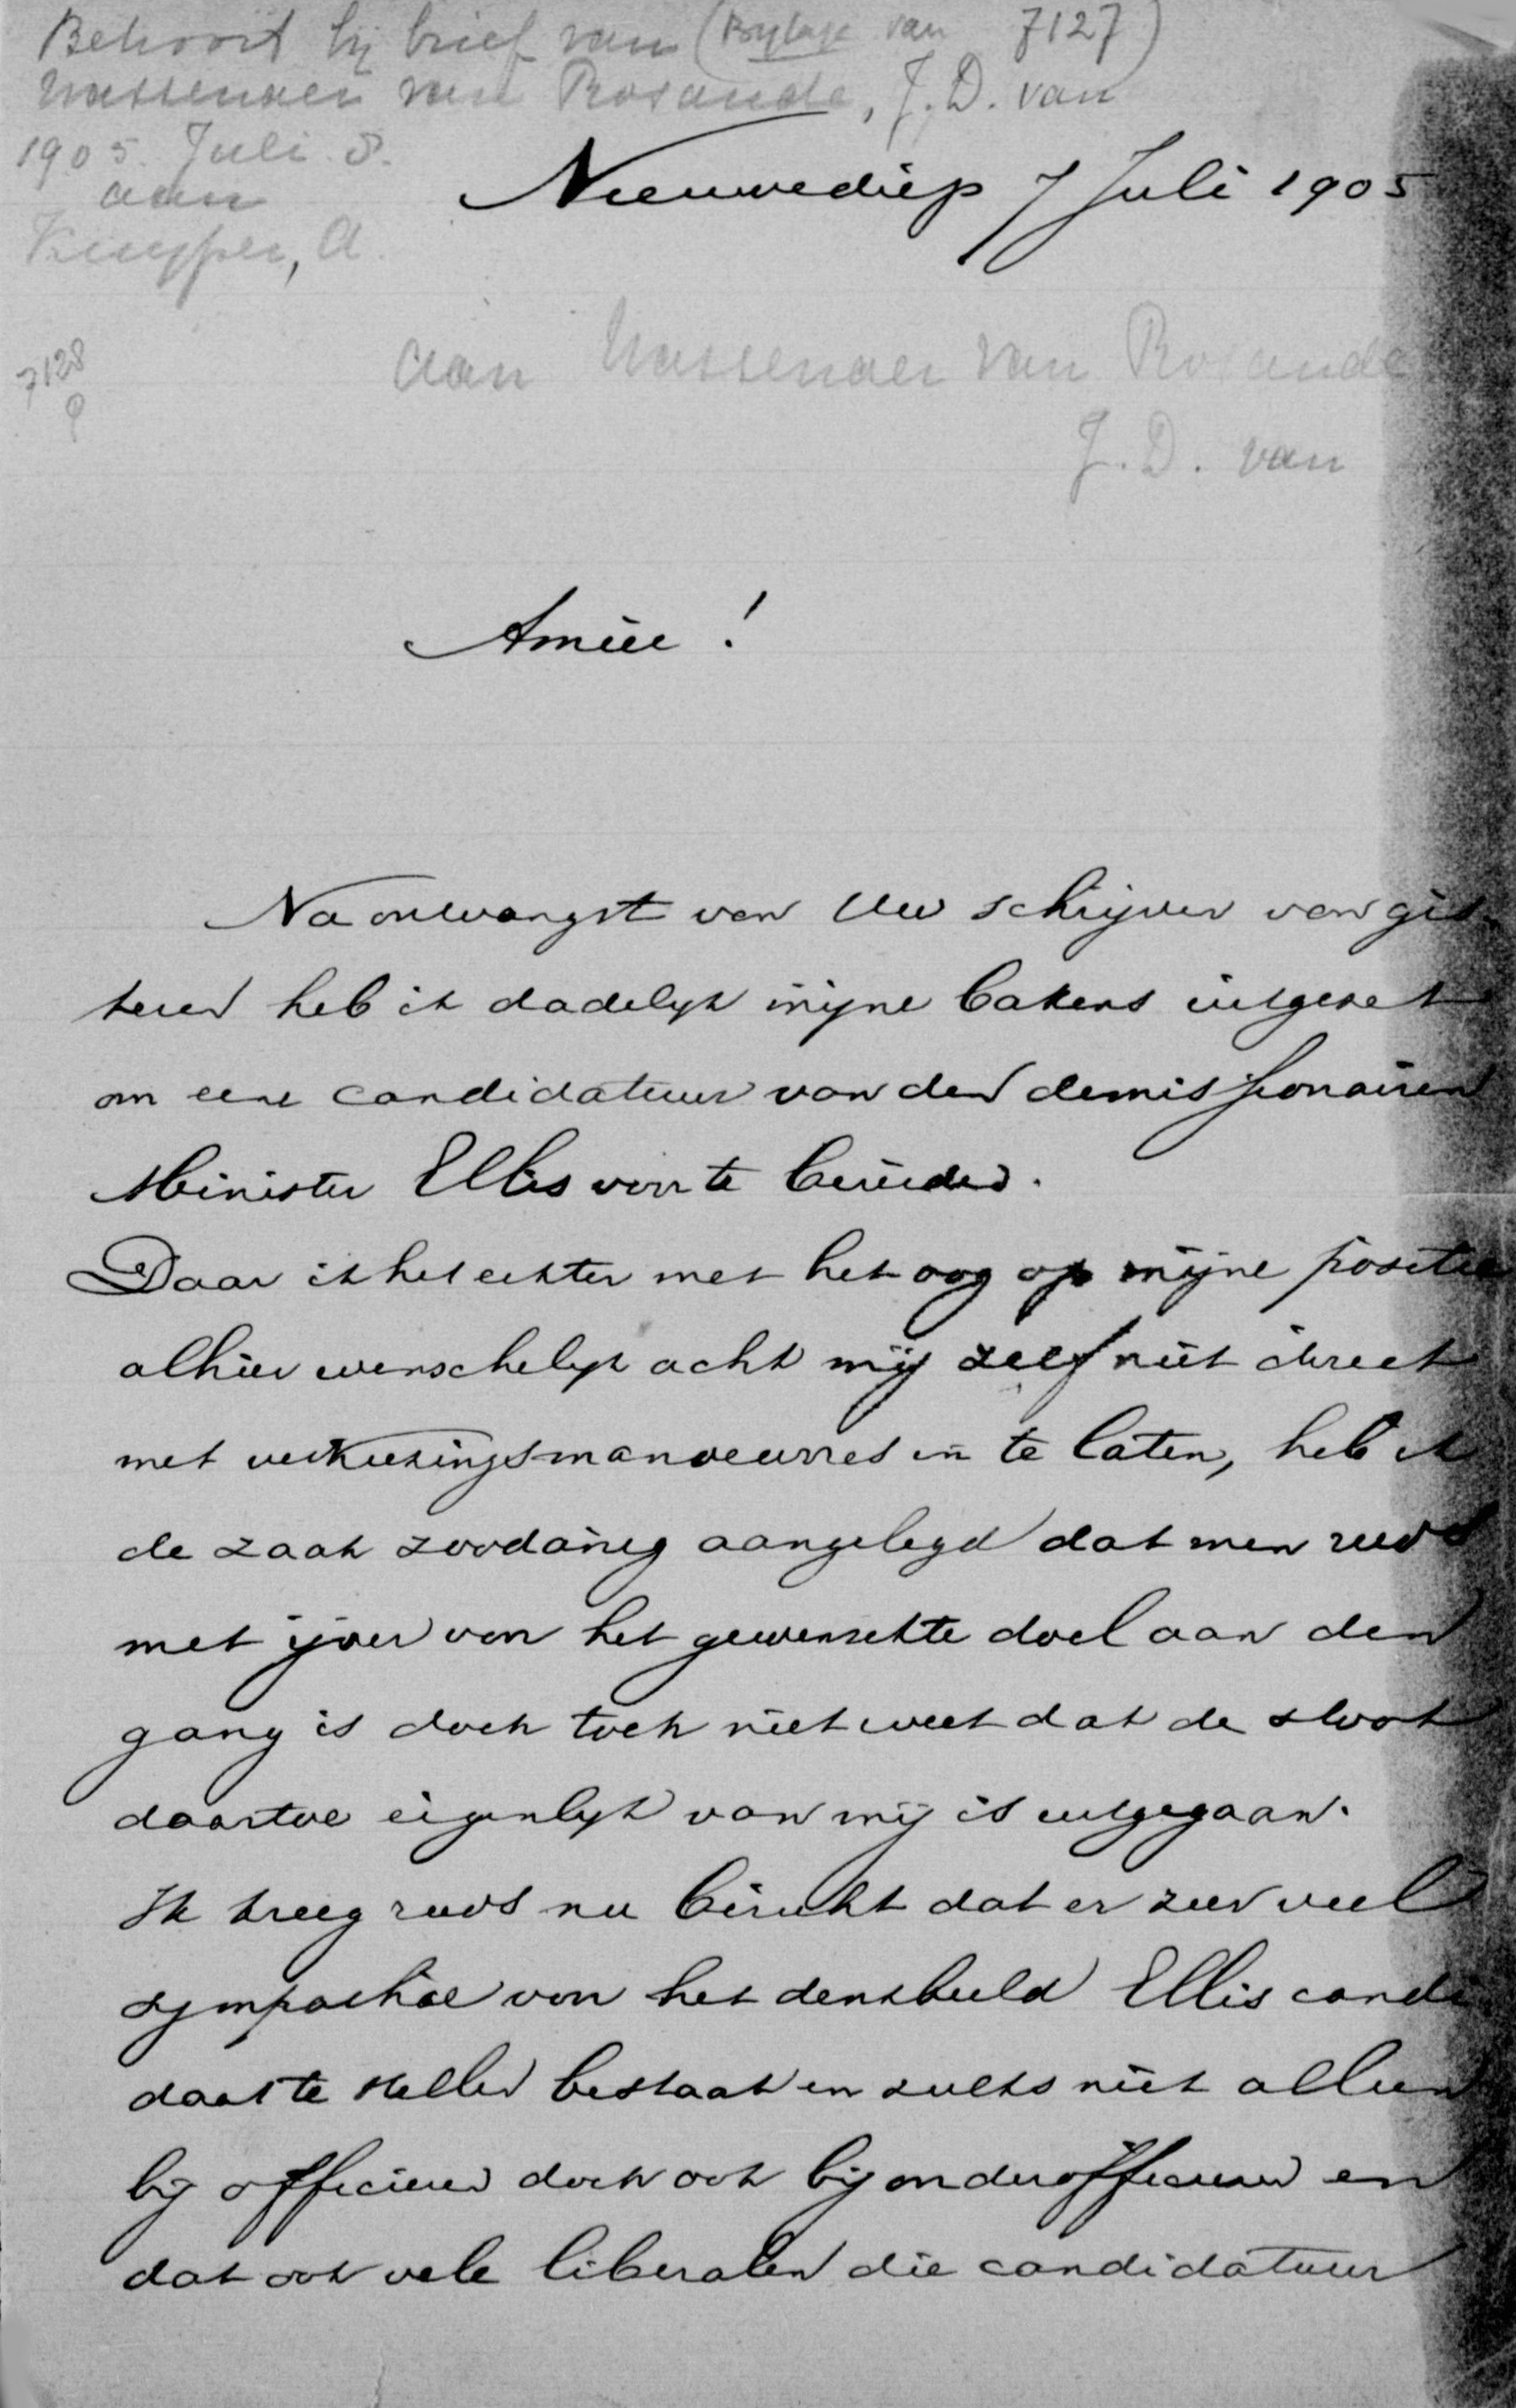 Behoort bij brief van (Bijlage van 7127)
Wassenaer van Rosande, J. D. van
1905. Juli 8.
aan
Kuyper, A.
Nieuwediep 7 Juli 1905
7128
aan Wassenaer van Rosande
J. D. van
Amice!
Na ontvangst van Uw schrijven van gis-
teren heb ik dadelijk mijne bakens uitgezet
om eene candidatuur van den demissionairen
Minister Ellis voor te bereiden.
Daar ik het echter met het oog op mijne positie
alhier wenschelijk acht mij zelf niet direct
met verkiezingsmanoeuvres in te laten, heb ik
de zaak zoodanig aangelegd dat men reeds
met ijver voor het gewenschte doel aan den
gang is doch toch niet weet dat de stoot
daartoe eigenlijk van mij is uitgegaan.
Ik kreeg reeds nu bericht dat er zeer veel
sympathie voor het denkbeeld Ellis candi
daat te stellen bestaat en zulks niet alleen
bij officieren doch ook bij onderofficieren en
dat ook vele liberalen die candidatuur